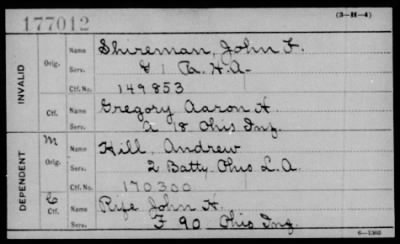 177012
(3-H-4)
INVALID
Orig.
Name Shireman, John F.
Serv. G 1 Pa. H.A.
Ctf. No. 149853
Ctf.
Name Gregory Aaron H.
Serv. A 18 Ohio Inf.
DEPENDENT
M
Orig.
Name Hill, Andrew
Serv. 2 Batty. Ohio L.A.
Ctf. No. 170300
C
Ctf.
Name Rife John H.
Serv. F 90 Ohio Inf.
6-1305